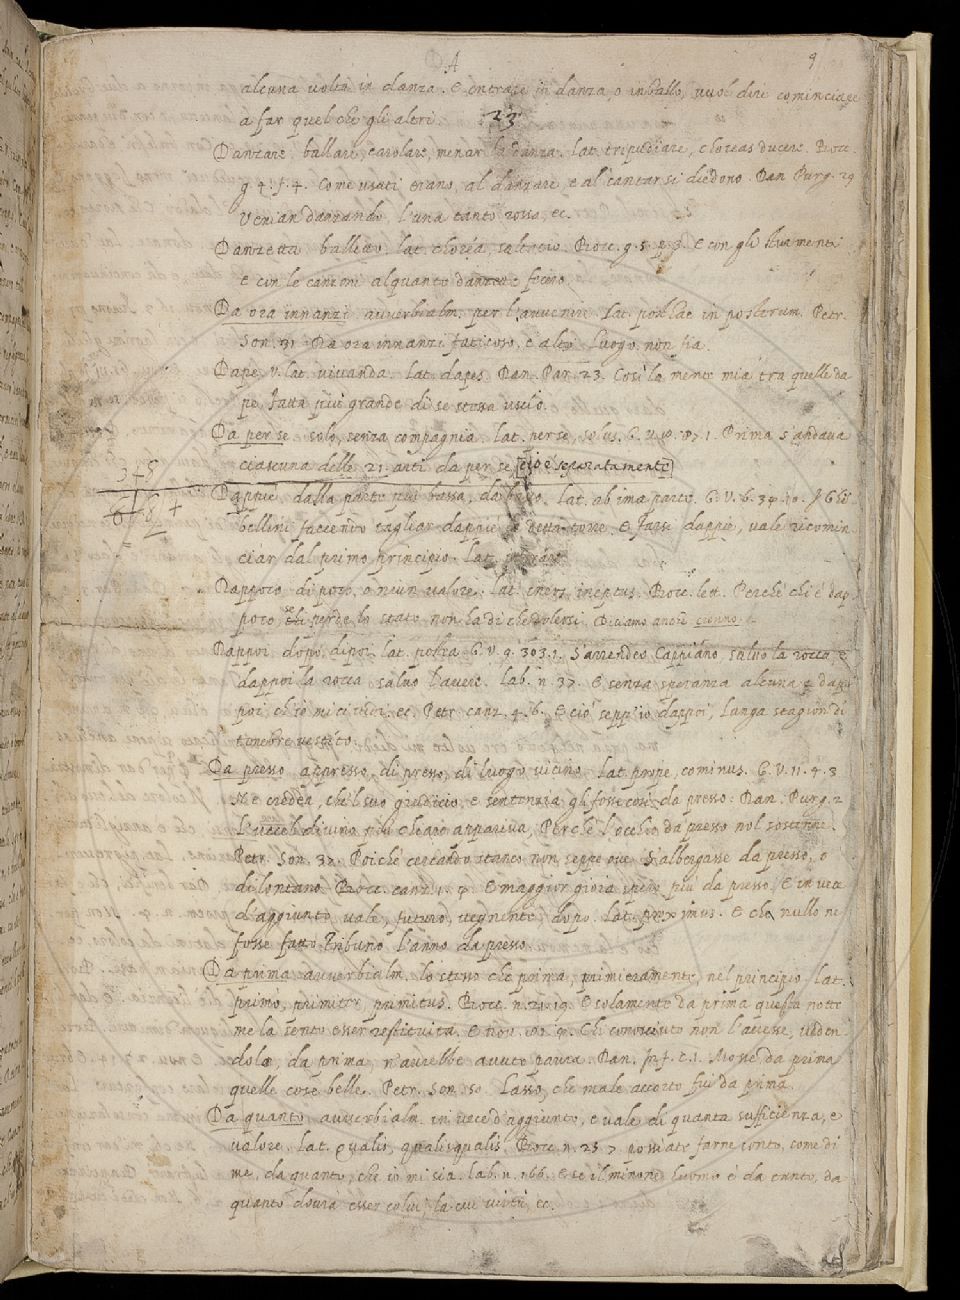 DA 9
alcuna volta in danza. E entrare in danza, o in ballo, vuol dire cominciare
a far quel che gli altri. 23
Danzare. ballare, carolare, menar la danza. lat. tripudiare, choreas ducere. Bocc.
g. 4. f. 4. Come usati erano, al danzare, e al cantar si diedono. Dan. Purg. 29
Venian danzando, l'una tanto rossa, ec.
Danzetta balletto. lat. choréa, saltatio. Bocc. g. 5. p. 3. E con gli stromenti
e con le canzoni alquanto danzette fecino.
Da ora innanzi avverbialm. per l'avvenire. Lat. posthac in posterum. Petr.
Son. 31. Da ora innanzi faticoso, e alto Luogo non fia.
Dape. v. lat. vivanda. Lat. dapes. Dan. Par. 23. Così la mente mia tra quelle da
pe, fatta più grande di se stessa uscìo.
Da per se solo, senza compagnia. lat. per se, solus. G. V. 1. Prima s'andava
ciascuna delle 21. arti da per se [cioè separatamente]
3 + 5
6 8 +
Dappiè, dalla parte più bassa, da basso. lat. ab ima parte. G. V. 6. 34. I Ghi
bellini faccenno tagliar dappiè la detta torre. E farsi dappiè, vale ricomin
ciar dal primo principio. lat.
Dappoco di poco, o niun valore. lat. iners, ineptus. Bocc. lett. Perchè chi è dap
poco, perde lo stato non ha di che dolersi. Diciamo anche cionno.
Dappoi dopo, dipoi. lat. postea G. V. 9. 303. 1. S'arrendeo Cappiano salvo la rocca e
dappoi la rocca salvo l'avere. Lab. n. 37. E senza speranza alcuna dap
poi, ch'io mi ci vidi. ec. Petr. canz. 4. 6. E ciò sepp'io dappoi, Lunga stagion di
tenebre vestito.
Da presso appresso, di presso, di luogo vicino. Lat. prope, cominus. G. V. 11. 4. 3
Ne credea, che'l suo giudicio, e sentenzia gli fosse così da presso. Dan. Purg. 2
L'uccel divino più chiaro appariva, Perche l'occhio da presso nol sostenne.
Petr. Son. 37. Poichè cercando stanco non seppe ove S'albergasse da presso, o
di lontano. Bocc. canz. 1. 4. E maggior gioia spero più da presso. E in vece
d'aggiunto vale, futuro, vegnente, dopo. lat. proximus. E che nullo ne
fosse fatto Tribuno l'anno da presso.
Da prima avverbialm. lo stesso che prima, primieramente, nel principio. lat.
primò, primiter, primitus. Bocc. n. 21. 19. E solamente da prima questa notte
me la sento esser restituita. E nov. Chi conosciuto non l'avesse, veden
dolo, da prima, n'avrebbe avuto paura. Dan. Inf. c. 1. Mosse da prima
quelle cose belle. Petr. Son. 50. Lasso, che male accorto fui da prima.
Da quanto avverbialm. in vece d'aggiunto, e vale di quanta sufficienza, e
valore. Lat. qualis, qualisqualis, Bocc. n. 25. 7. possiate farne conto, come di
me, da quanto, che io mi sia. Lab. n. 166. E se il minore huomo è da cento, da
quanto dovrà esser colui, la cui virtù, ec.